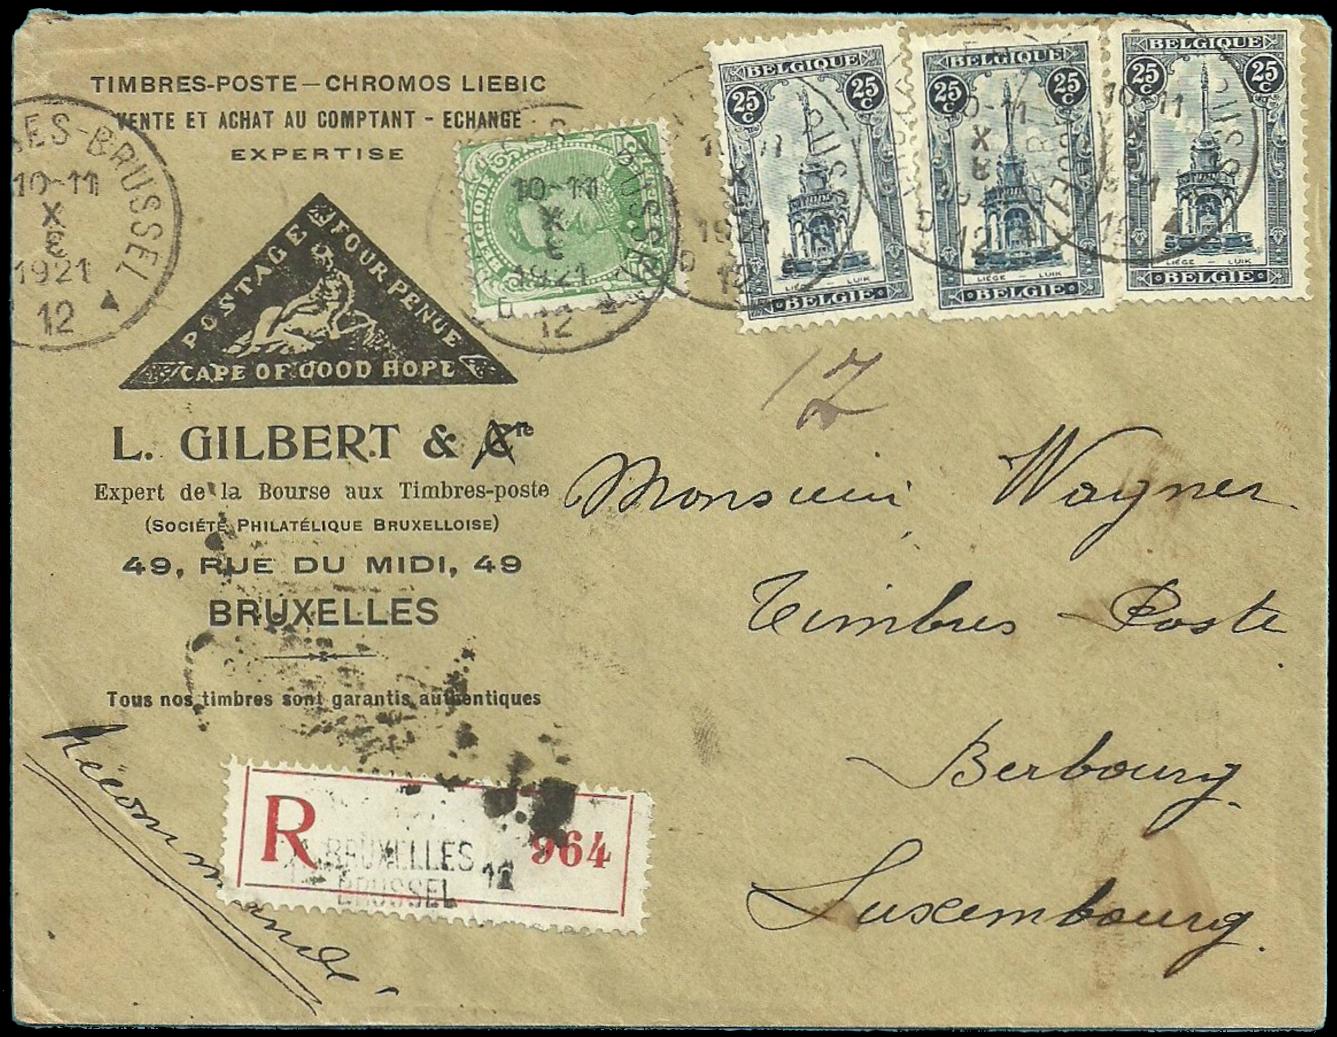 TIMBRES-POSTE — CHROMOS LIEBIC
VENTE ET ACHAT AU COMPTANT - ECHANGE
EXPERTISE
POSTAGE
FOUR PENUE
CAPE OF GOOD HOPE
L. GILBERT & Cie
Expert de la Bourse aux Timbres-poste
(SOCIÉTÉ PHILATÉLIQUE BRUXELLOISE)
49, RUE DU MIDI, 49
BRUXELLES
Tous nos timbres sont garantis authentiques
Recommandé
R
BRUXELLES
BRUSSEL
12
964
ES-BRUSSEL
10-11
X
1921
12
BELGIQUE
10-11
X
1921
D 12
BELGIQUE
25 C 25 C
LIÉGE — LUIK
BELGIE
BELGIQUE
25 C 25 C
LIÉGE — LUIK
BELGIE
BELGIQUE
25 C 25 C
LIÉGE — LUIK
BELGIE
12
Monsieur Wagner
Timbres-Poste
Berbourg
Luxembourg.